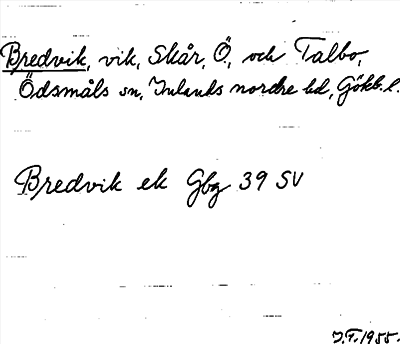 Bredvik, vik, Skår, Ö, och Talbo,
Ödsmåls sn, Inlands nordre hd, Gökb. l.
Bredvik ek Gbg 39 SV
J.F. 1955.